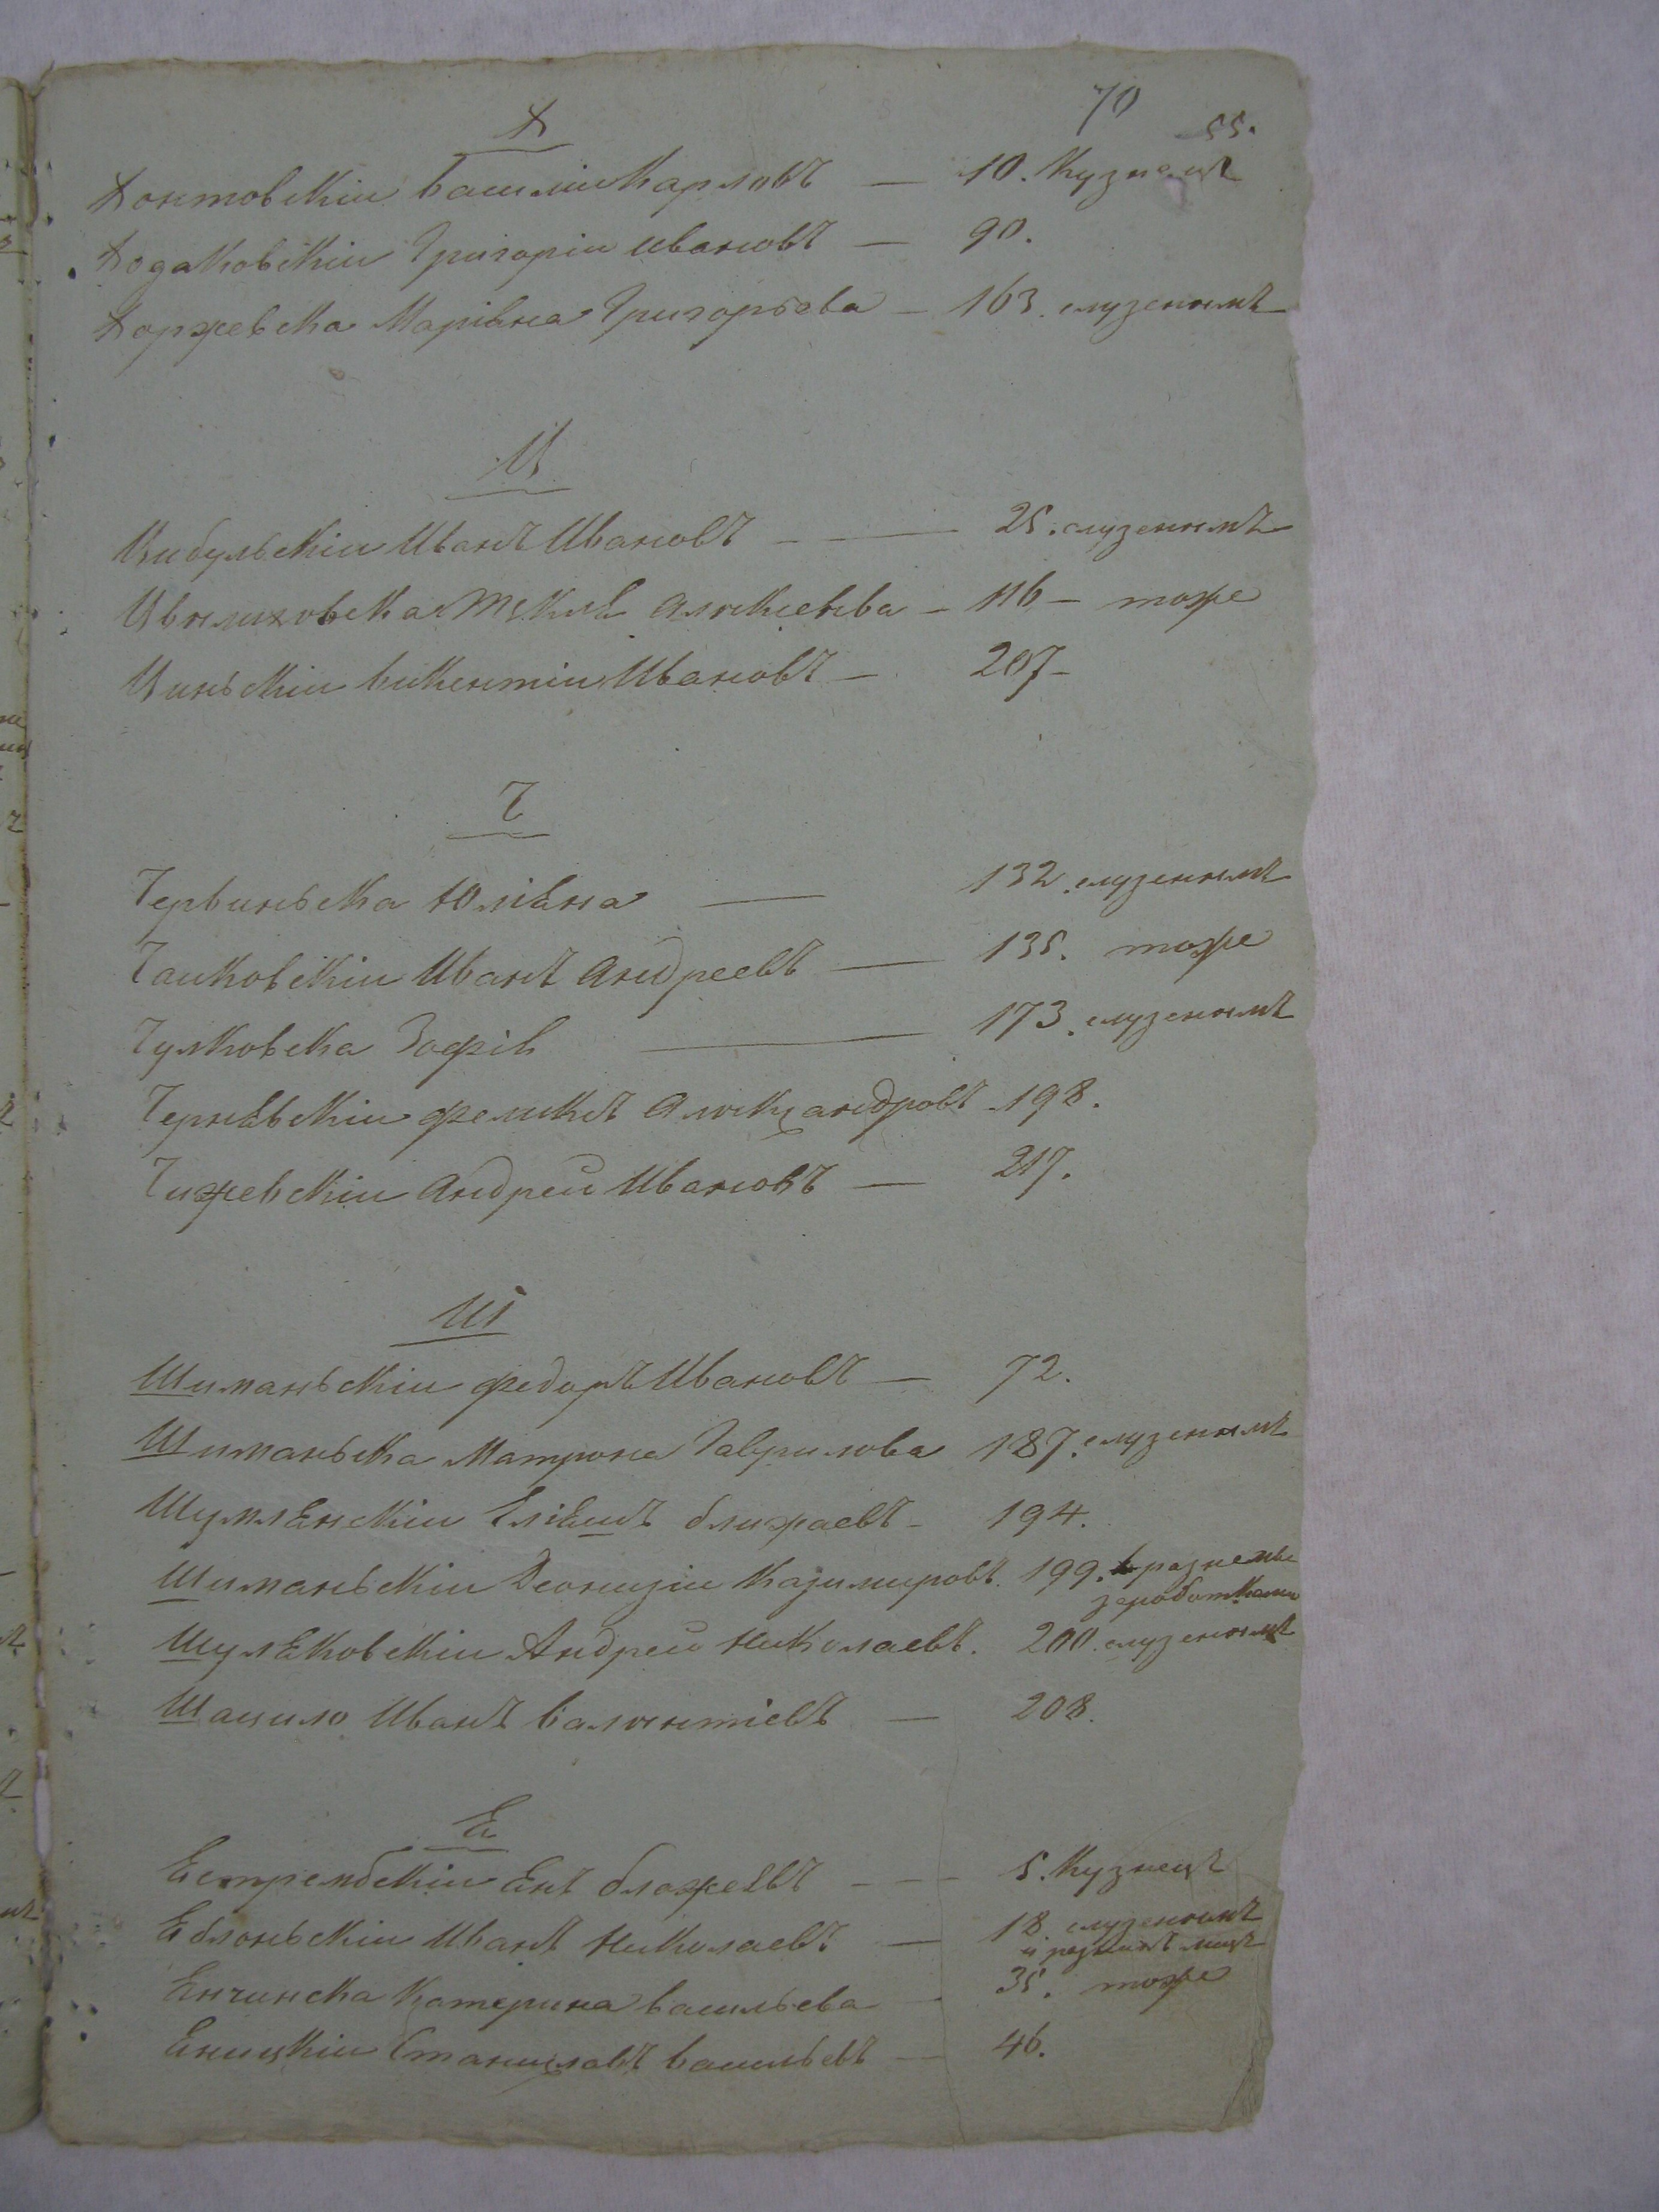 70
55.
Х
Хонтовскiи Василiи Карловъ — 10. Кузнецъ
Ходаковскiи Григорiи Ивановъ — 90.
Хоржевска Марiѣна Григорьева — 163. служенiимъ
Ц
Цибульскiи Иванъ Ивановъ — 25. служенiимъ
Цвилиховска Текля Алексѣева — 116 — тоже
Циньскiи Викентiи Ивановъ — 207 —
Ч
Червиньска Юлiѣна — 132. служенiимъ
Чайковскiи Иванъ Андреевъ — 135. тоже
Чулковска Зофiѣ — 173. служенiимъ
Чернѣвскiи Феликсъ Александровъ 198.
Чижевскiи Андрей Ивановъ — 217.
Ш
Шиманьскiи Федоръ Ивановъ — 72.
Шиманьска Матрона Гаврилова 187. служенiимъ
Шумлѣнскiи Блажаевъ — 194.
Шиманьскiи Деонизiи Казимировъ. 199. разнемы
заработками
Шулѣковскiи Андрей Николаевъ. 200. служенiимъ
Шацило Иванъ Валентiевъ — 208.
Е
Естрембскiи Енъ Блажеевъ — 5. Кузнецъ
Еблоньскiи Иванъ Николаевъ — 18 служенiимъ
Енчинска Катерина Васильева — 35. тоже
Еницкiи Станиславъ Васильевъ — 46.